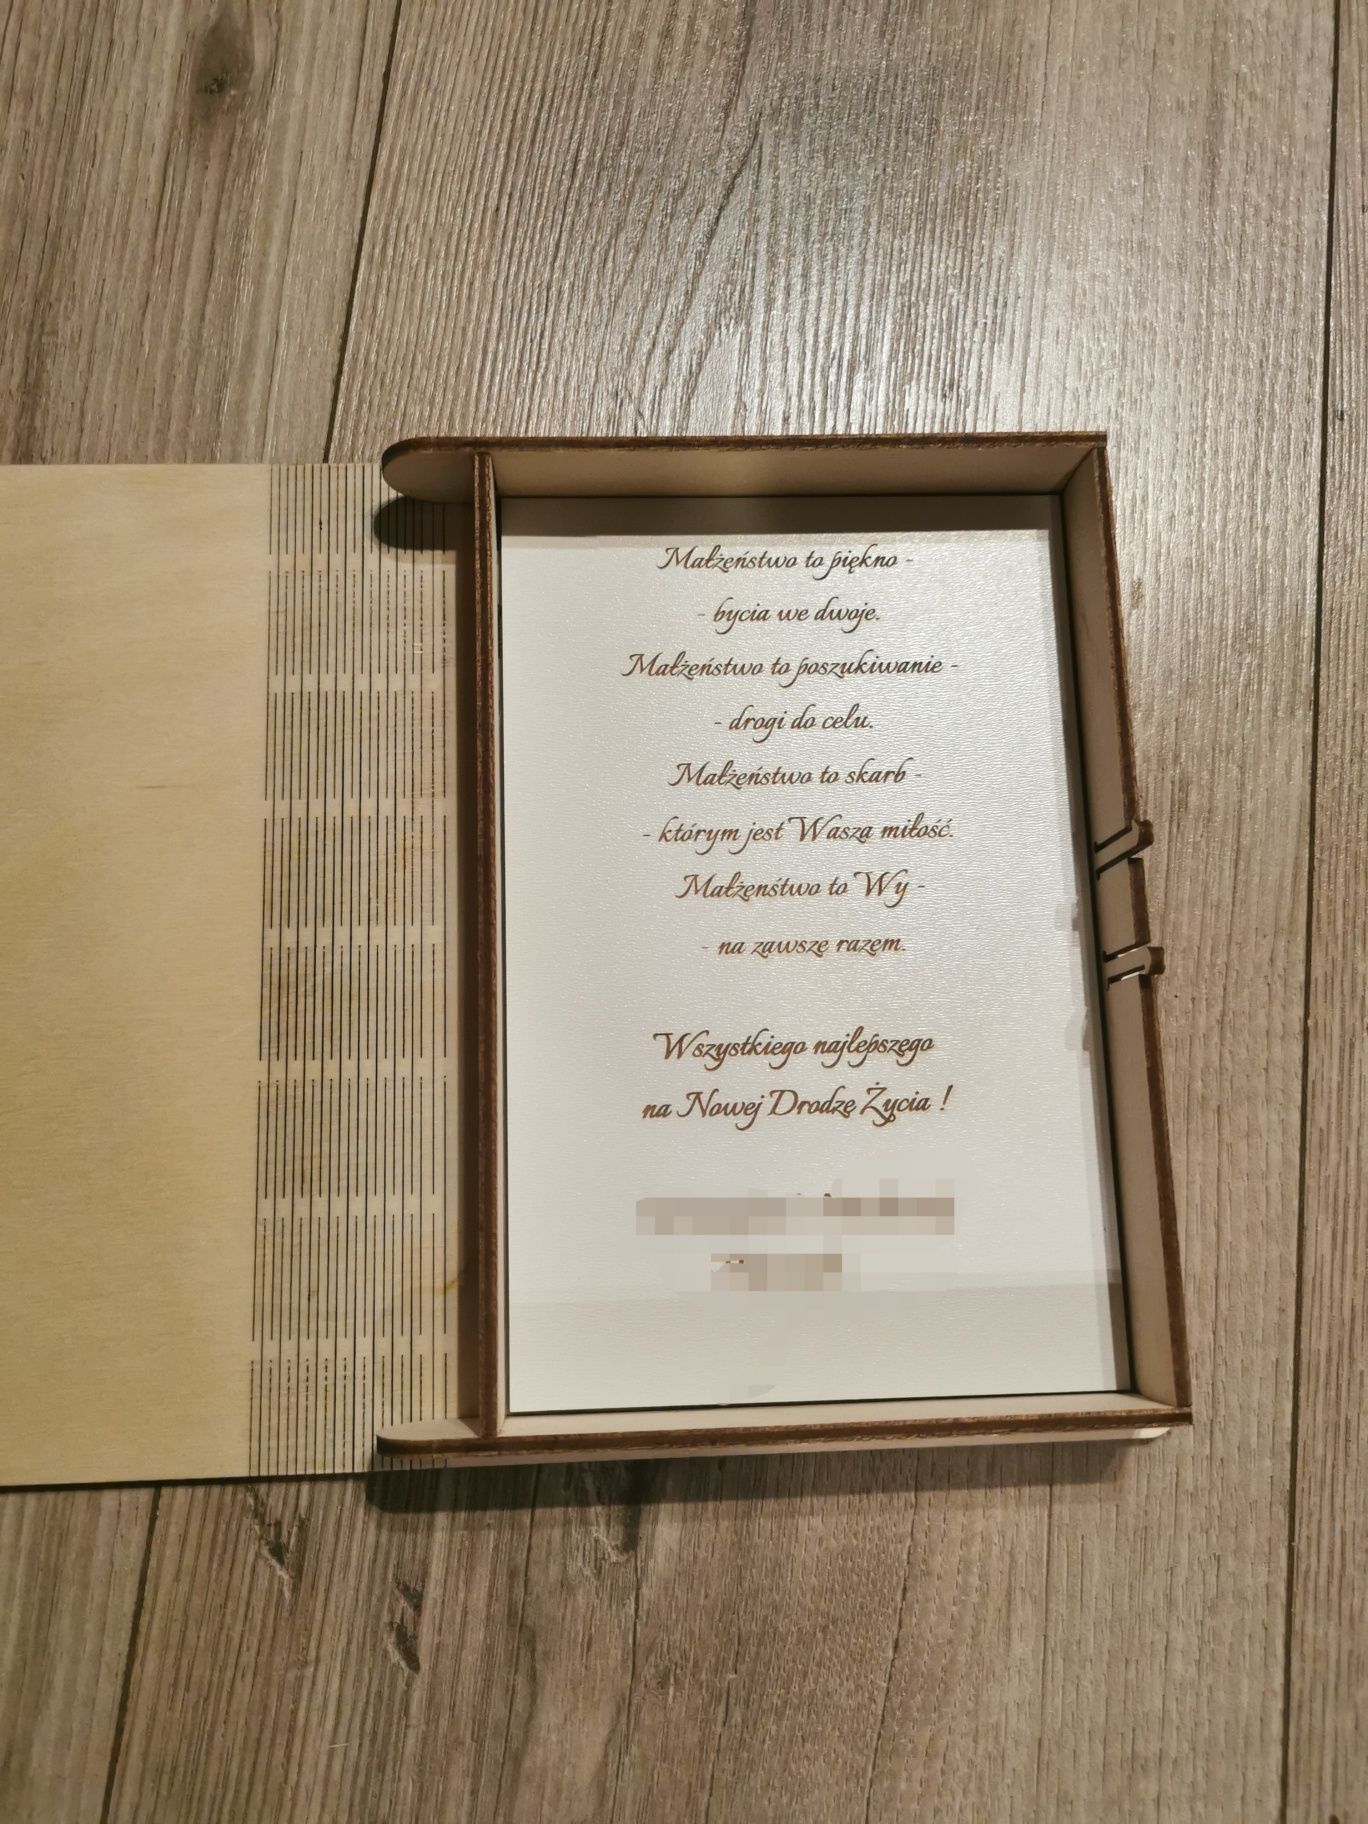 Małżeństwo to piękno -
- bycia we dwoje.
Małżeństwo to poszukiwanie -
- drogi do celu.
Małżeństwo to skarb -
- którym jest Wasza miłość.
Małżeńśtwo to Wy -
- na zawsze razem.
Wszystkiego najlepszego
na Nowej Drodze Życia !